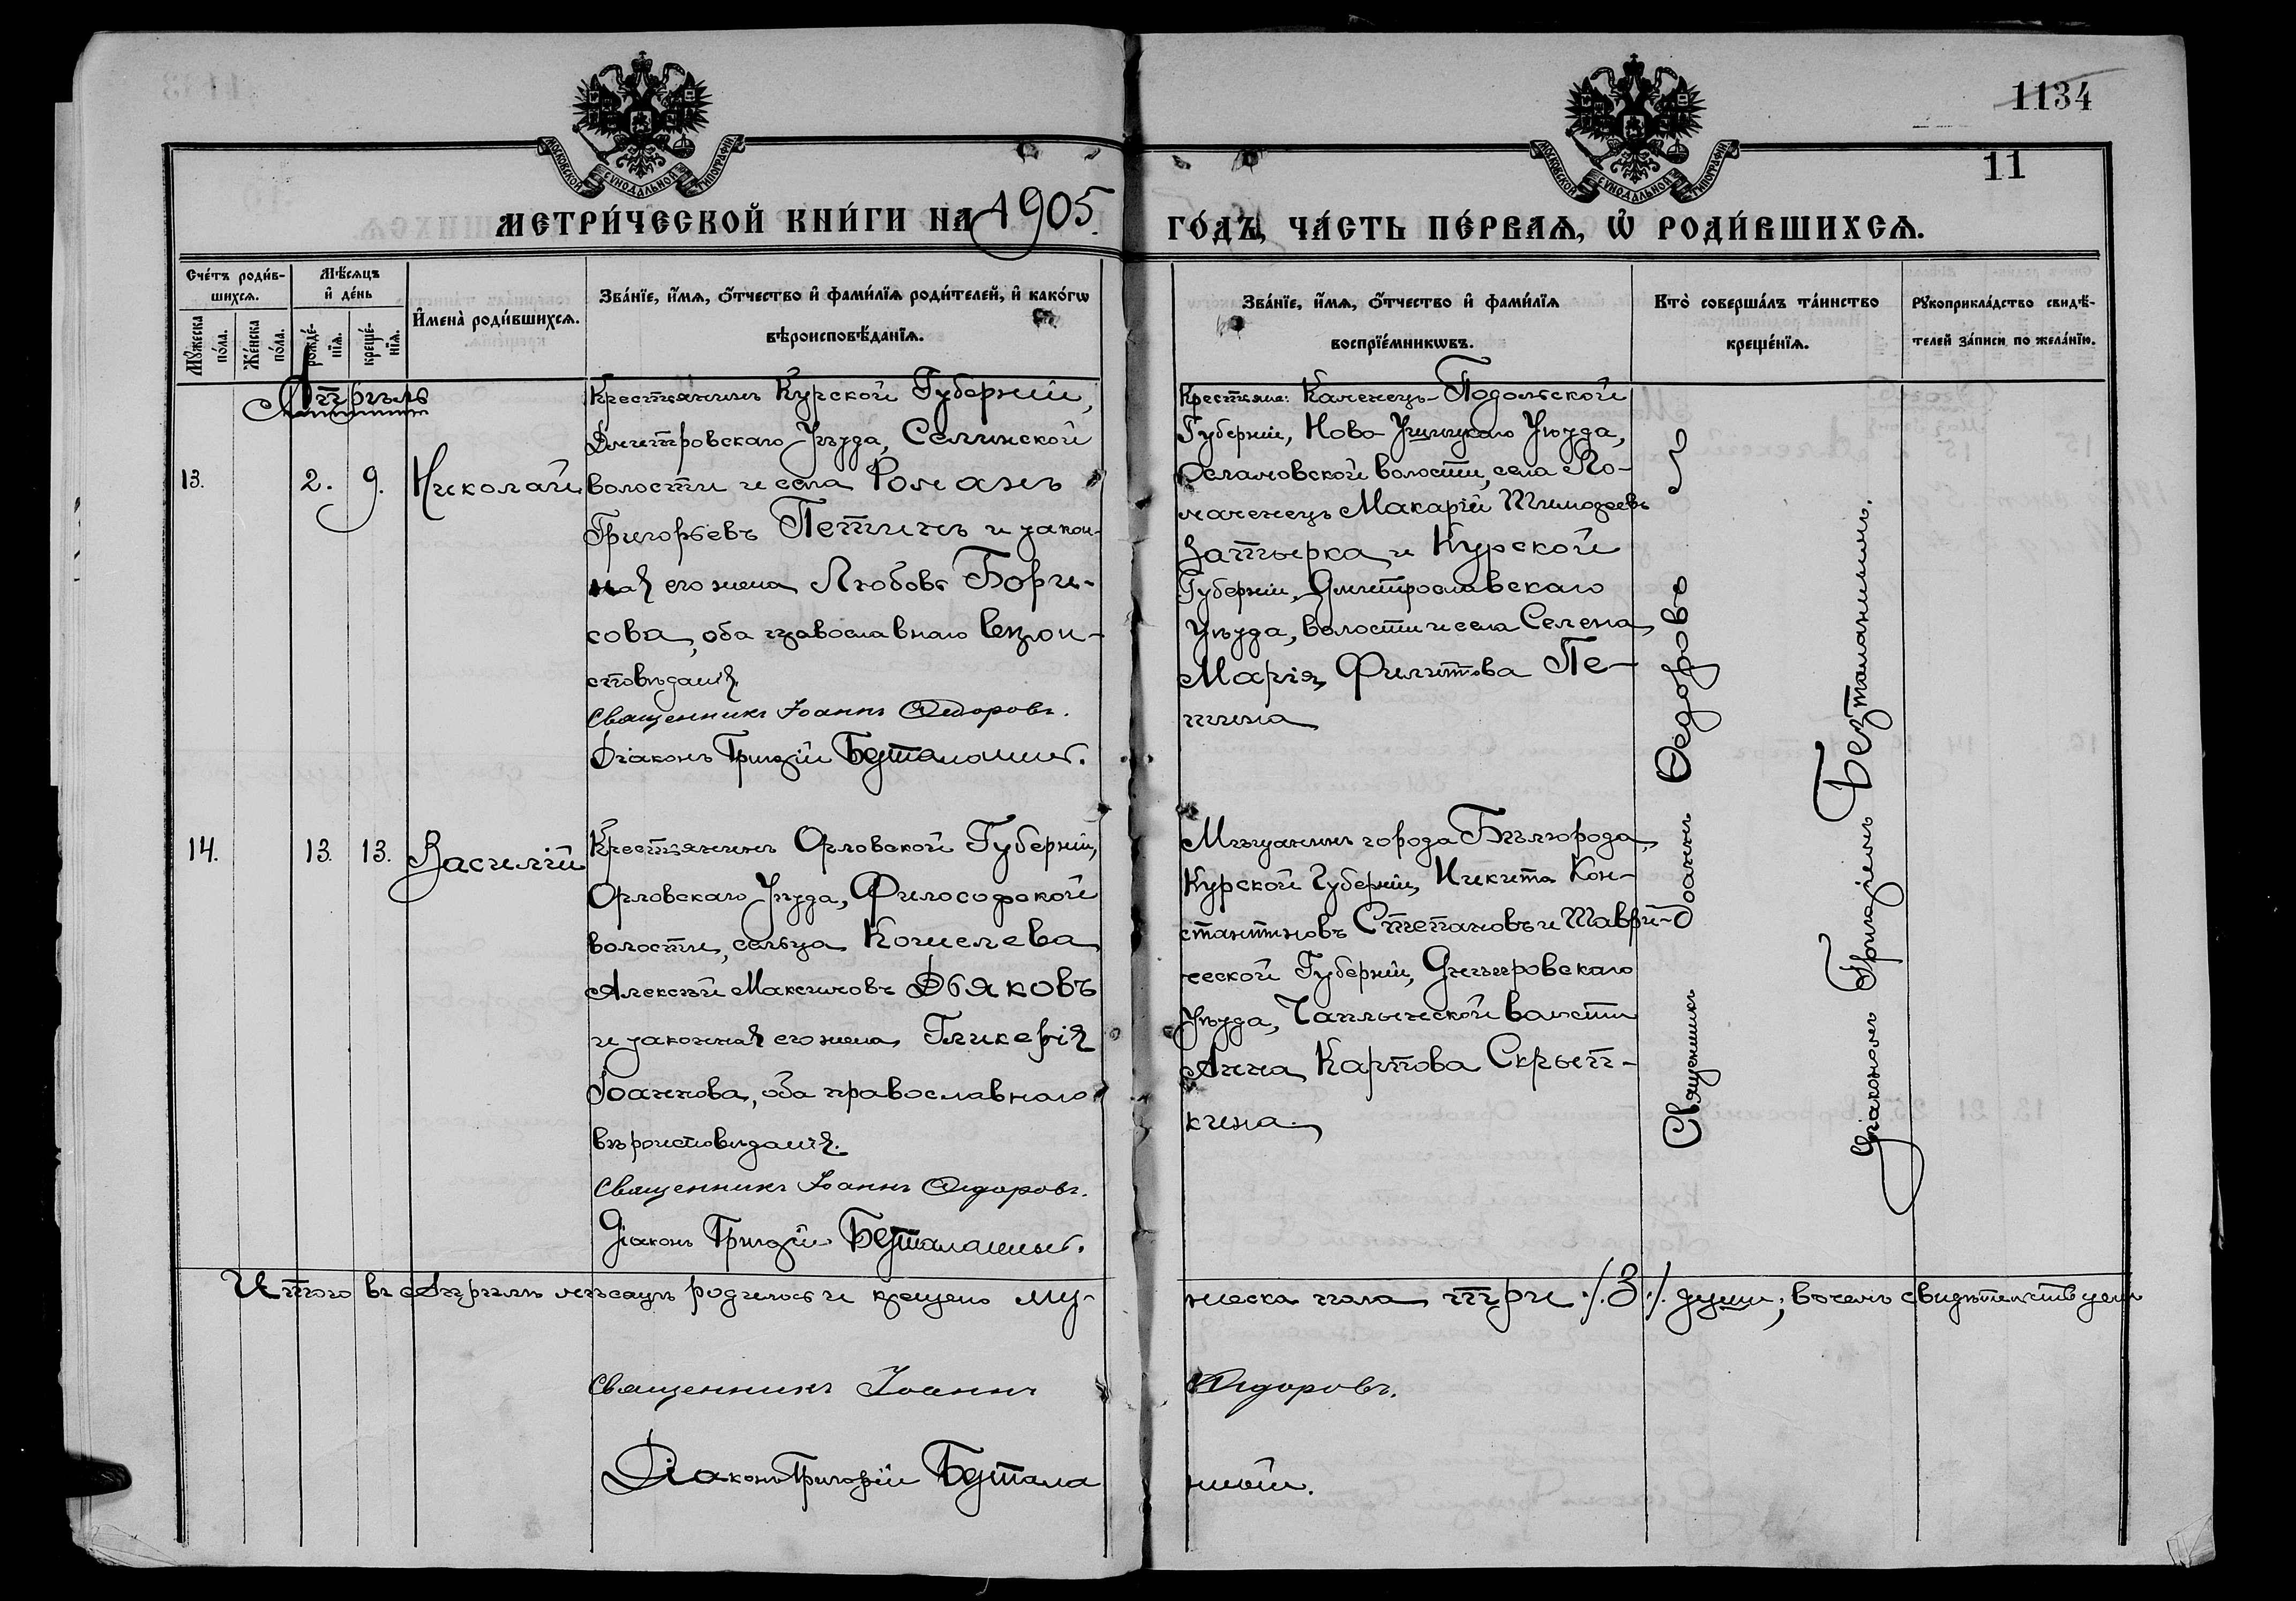 1134
11
МОСКОВСКОЙ СѴНОДАЛЬНОЙ ТИПОГРАФІИ
МОСКОВСКОЙ СѴНОДАЛЬНОЙ ТИПОГРАФІИ
МЕТРИ́ЧЕСКОЙ КНИ́ГИ НА 1905
ГО́ДЪ, ЧА́СТЬ ПЕ́РВАЯ, Ѡ҆ РОДИ́ВШИХСЯ.
Сче́тъ роди́в-
шихся.
Мѹ́жеска по́ла.
Же́нска по́ла.
Мѣ́сяцъ и҆ де́нь
рожде́-нїя.
креще́-нїя.
И҆мена̀ роди́вшихся.
Зва́нїе, и҆́мя, ѻ҆́тчество и҆ фами́лїя роди́телей, и҆ како́гѡ
вѣроисповѣ́данїя.
Зва́нїе, и҆́мя, ѻ҆́тчество и҆ фами́лїя
воспрїе́мникѡвъ.
Кто̀ соверша́лъ та́инство
креще́нїя.
Рѹкоприкла́дство свидѣ́-
телей за́писи по жела́нїю.
Апрѣль
13.
2.
9.
Николай
Крестьянинъ Курской Губерніи,
Дмитровскаго Уѣзда, Селинской
волости и села Романъ
Григорьевъ Петинъ и закон-
ная его жена Любовь Бори-
сова, оба православнаго вѣрои-
сповѣданія.
Священникъ Іоаннъ Ѳедоровъ.
Діаконъ Григорій Безталанный.
Крестьяне: Каменецъ-Подольской
Губерніи, Ново-Ушицкаго Уѣзда,
волости, села По-
Макарій Тимоѳеевъ
Затырка и Курской
Губерніи, Дмитрославскаго
Уѣзда, волости и села Селена
Марія Филипова Пе-
тина
14.
13.
13.
Василій
Крестьянинъ Орловской Губерніи,
Орловскаго Уѣзда, Философской
волости, сельца Кошелева
Алексѣй Максимовъ Дьяковъ
и законная его жена Гликерія
Іоаннова, оба православнаго
вѣроисповѣданія.
Священникъ Іоаннъ Ѳедоровъ.
Діаконъ Григорій Безталанный.
Мѣщанинъ города Бѣлгорода,
Курской Губерніи, Никита Кон-
стантиновъ Степановъ и Таври-
ческой Губерніи, Днѣпровскаго
Уѣзда, Чаплынской волости
Анна Карпова Скрып-
кина.
Священникъ Іоаннъ Ѳедоровъ съ
Діакономъ Григоріемъ Безталаннымъ.
Итого въ Апрѣлѣ мѣсяцѣ родилось и крещено му-
жеска пола три ./.3./. души; въ чемъ свидѣтельствуемъ
Священникъ Іоаннъ Ѳедоровъ.
Діаконъ Григорій Безтала
нный.